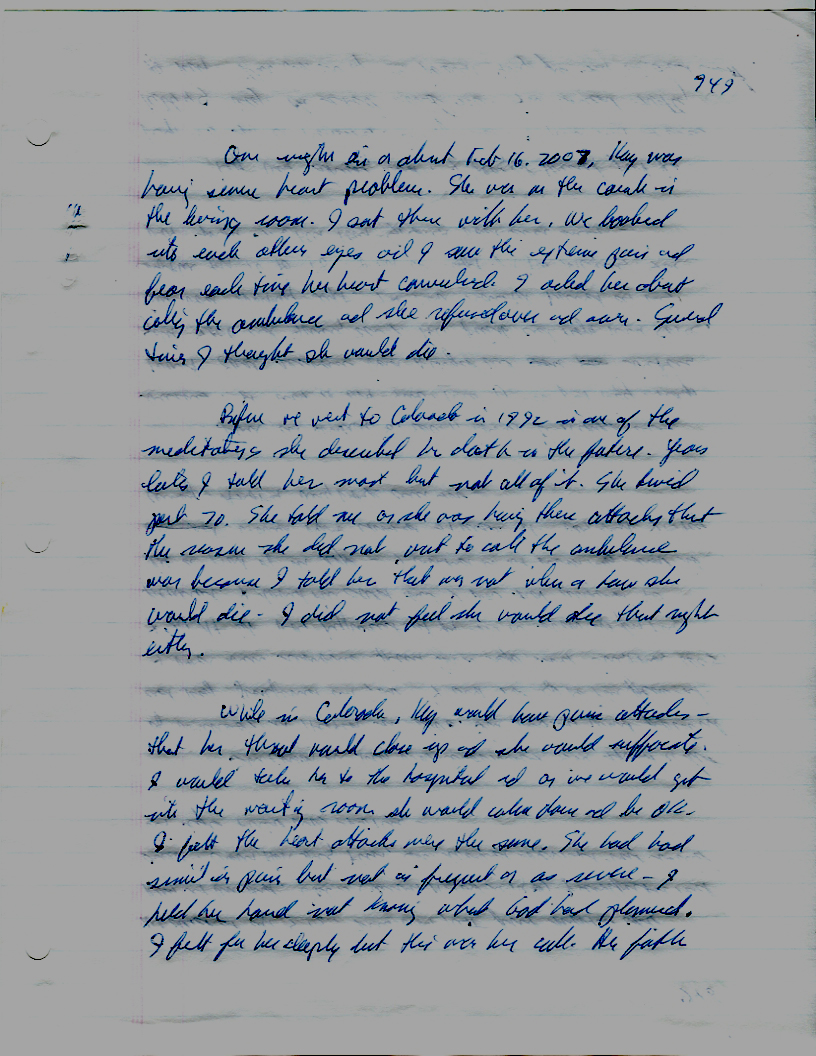 949
One night on or about Feb 16. 2007, Kay was
having severe heart problem. She was on the couch in
the living room. I sat there with her. We looked
into each others eyes and I saw the extreme pain and
fear each time her heart convulsed. I asked her about
calling the ambulance and she refused over and over. Several
times I thought she would die.
Before we went to Colorado in 1992 in one of the
meditations she described her death in the future. Years
later I told her most but not all of it. She lived
past 70. She told me as she was having these attacks that
the reason she did not want to call the ambulance
was because I told her that was not when or how she
would die - I did not feel she would die that night
either.
While in Colorado, Kay would have panic attacks -
that her throat would close up and she would suffocate.
I would take her to the hospital and as we would get
into the waiting room she would calm down and be OK.
I felt the heart attacks were the same. She had had
similar pain but not as frequent or as severe - I
held her hand not knowing what God had planned.
I felt for her deeply but this was her call. Her faith